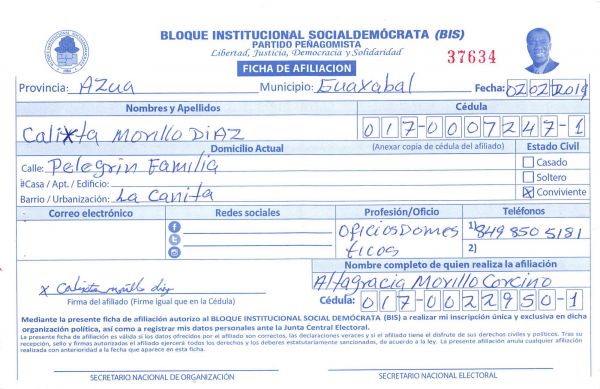 BLOQUE INSTITUCIONAL SOCIALDEMÓCRATA (BIS)
PARTIDO PEÑAGOMISTA
Libertad, Justicia, Democracia y Solidaridad
37634
FICHA DE AFILIACION
Provincia: Azua Municipio: Guayabal Fecha: 02022019
Nombres y Apellidos Cédula
Calixta Morillo Diaz 017-0007247-1
Domicilio Actual (Anexar copia de cédula del afiliado) Estado Civil
Calle: Pelegrin Familia Casado
#Casa / Apt. / Edificio: Soltero
Barrio / Urbanización: La Canita Conviviente
Correo electrónico Redes sociales Profesión/Oficio Teléfonos
Oficios Domes 1) 849 850 5181
ticos 2)
Nombre completo de quien realiza la afiliación
x Calixta morillo diaz Altagracia Morillo Corcino
Firma del afiliado (Firme igual que en la Cédula) Cédula: 017-0022950-1
Mediante la presente ficha de afiliación autorizo al BLOQUE INSTITUCIONAL SOCIAL DEMÓCRATA (BIS) a realizar mi inscripción única y exclusiva en dicha
organización política, así como a registrar mis datos personales ante la Junta Central Electoral.
La presente ficha de afiliación es válida si los datos ofrecidos por el afiliado son correctos, las declaraciones veraces y si el afiliado tiene el disfrute de sus derechos civiles y políticos. Tras su
recepción, sello y firmas autorizados el afiliado ejercerá todos los derechos y los deberes estatutariamente sancionados, de acuerdo a la ley. La presente afiliación anula cualquier afiliación
realizada con anterioridad a la fecha que aparece en esta ficha.
SECRETARIO NACIONAL DE ORGANIZACIÓN SECRETARIO NACIONAL ELECTORAL